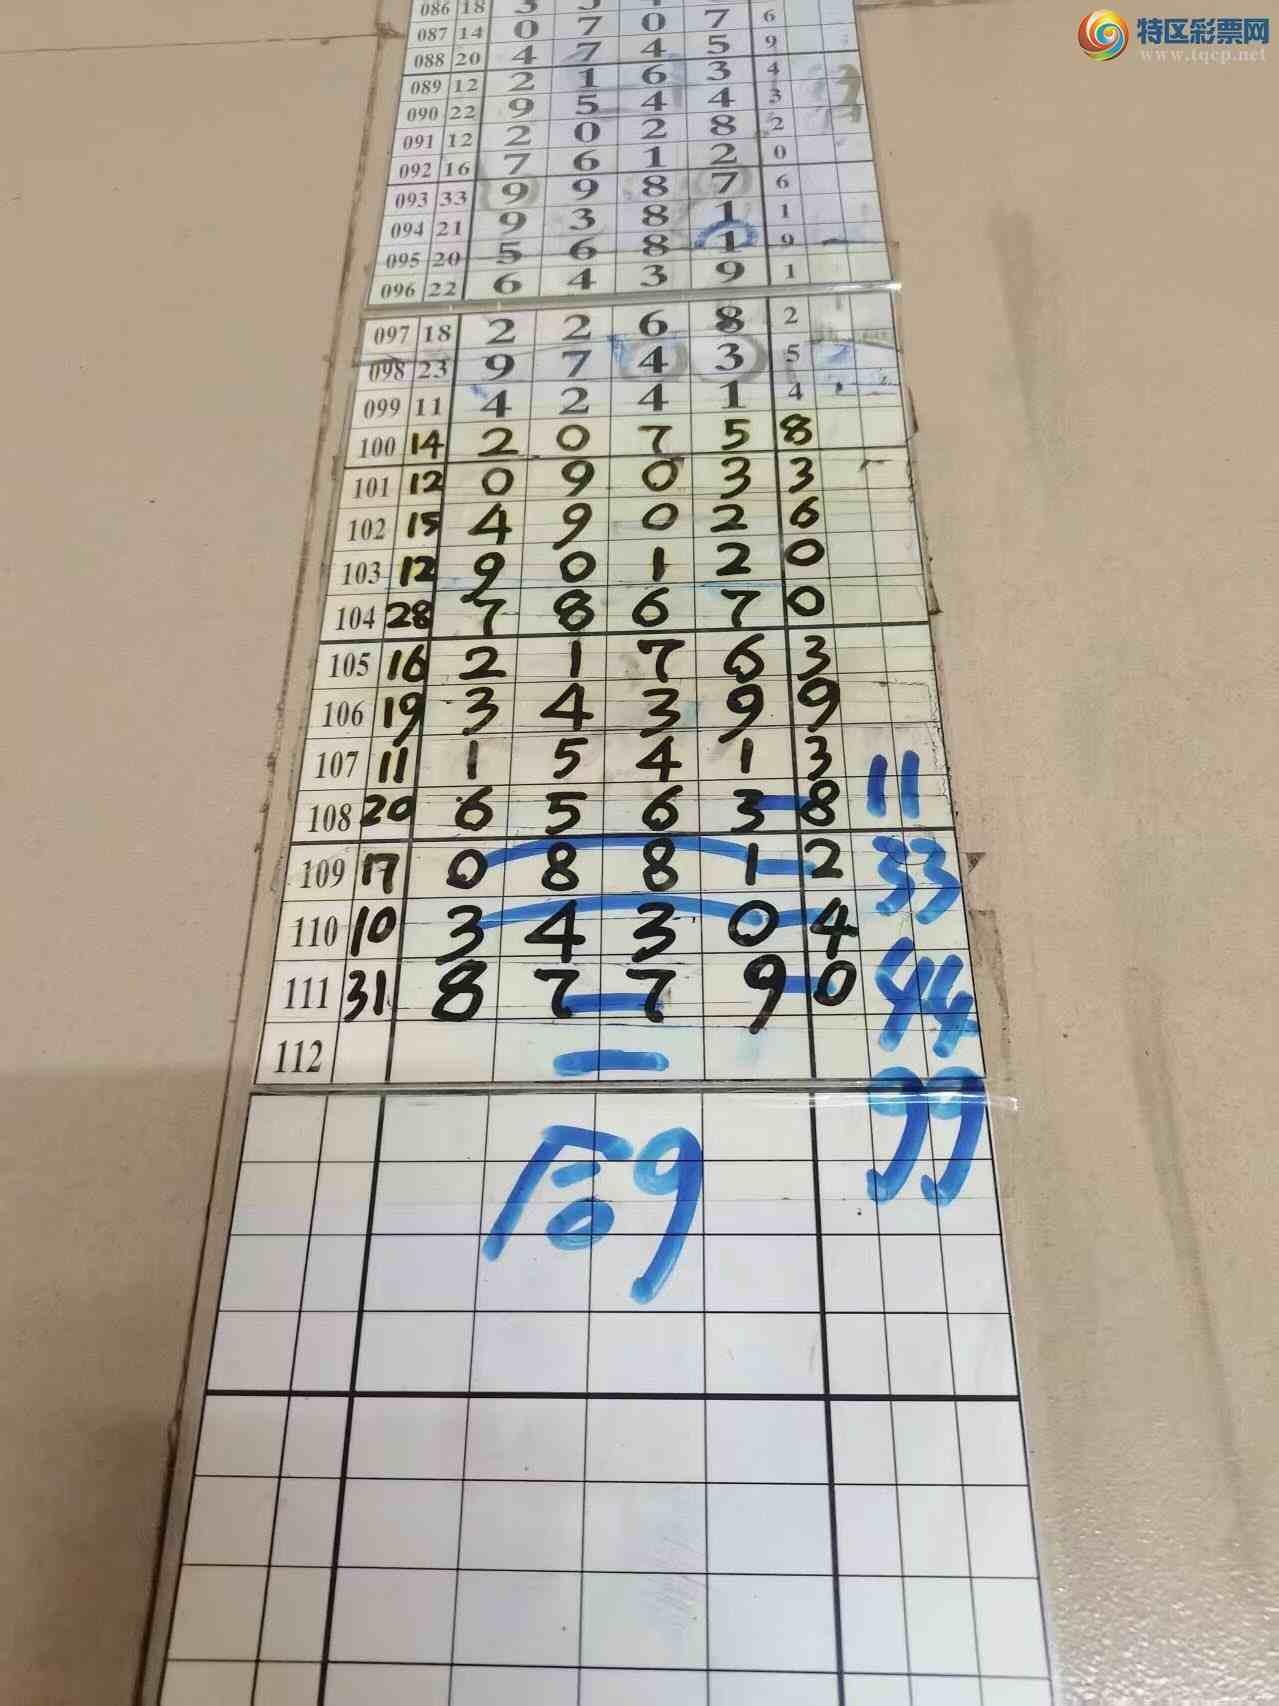 特区彩票网
www.tqcp.net
086 18 3
087 14 0 7 0 7 6
088 20 4 7 4 5 9
089 12 2 1 6 3 4
090 22 9 5 4 4 3
091 12 2 0 2 8 2
092 16 7 6 1 2 0
093 33 9 9 8 7 6
094 21 9 3 8 1 1
095 20 5 6 8 1 9
096 22 6 4 3 9 1
097 18 2 2 6 8 2
098 23 9 7 4 3 5
099 11 4 2 4 1 4
100 14 2 0 7 5 8
101 12 0 9 0 3 3
102 15 4 9 0 2 6
103 12 9 0 1 2 0
104 28 7 8 6 7 0
105 16 2 1 7 6 3
106 19 3 4 3 9 9
107 11 1 5 4 1 3
108 20 6 5 6 3 8 11
109 17 0 8 8 1 2 33
110 10 3 4 3 0 4
111 31 8 7 7 9 0 44
112
99
合9